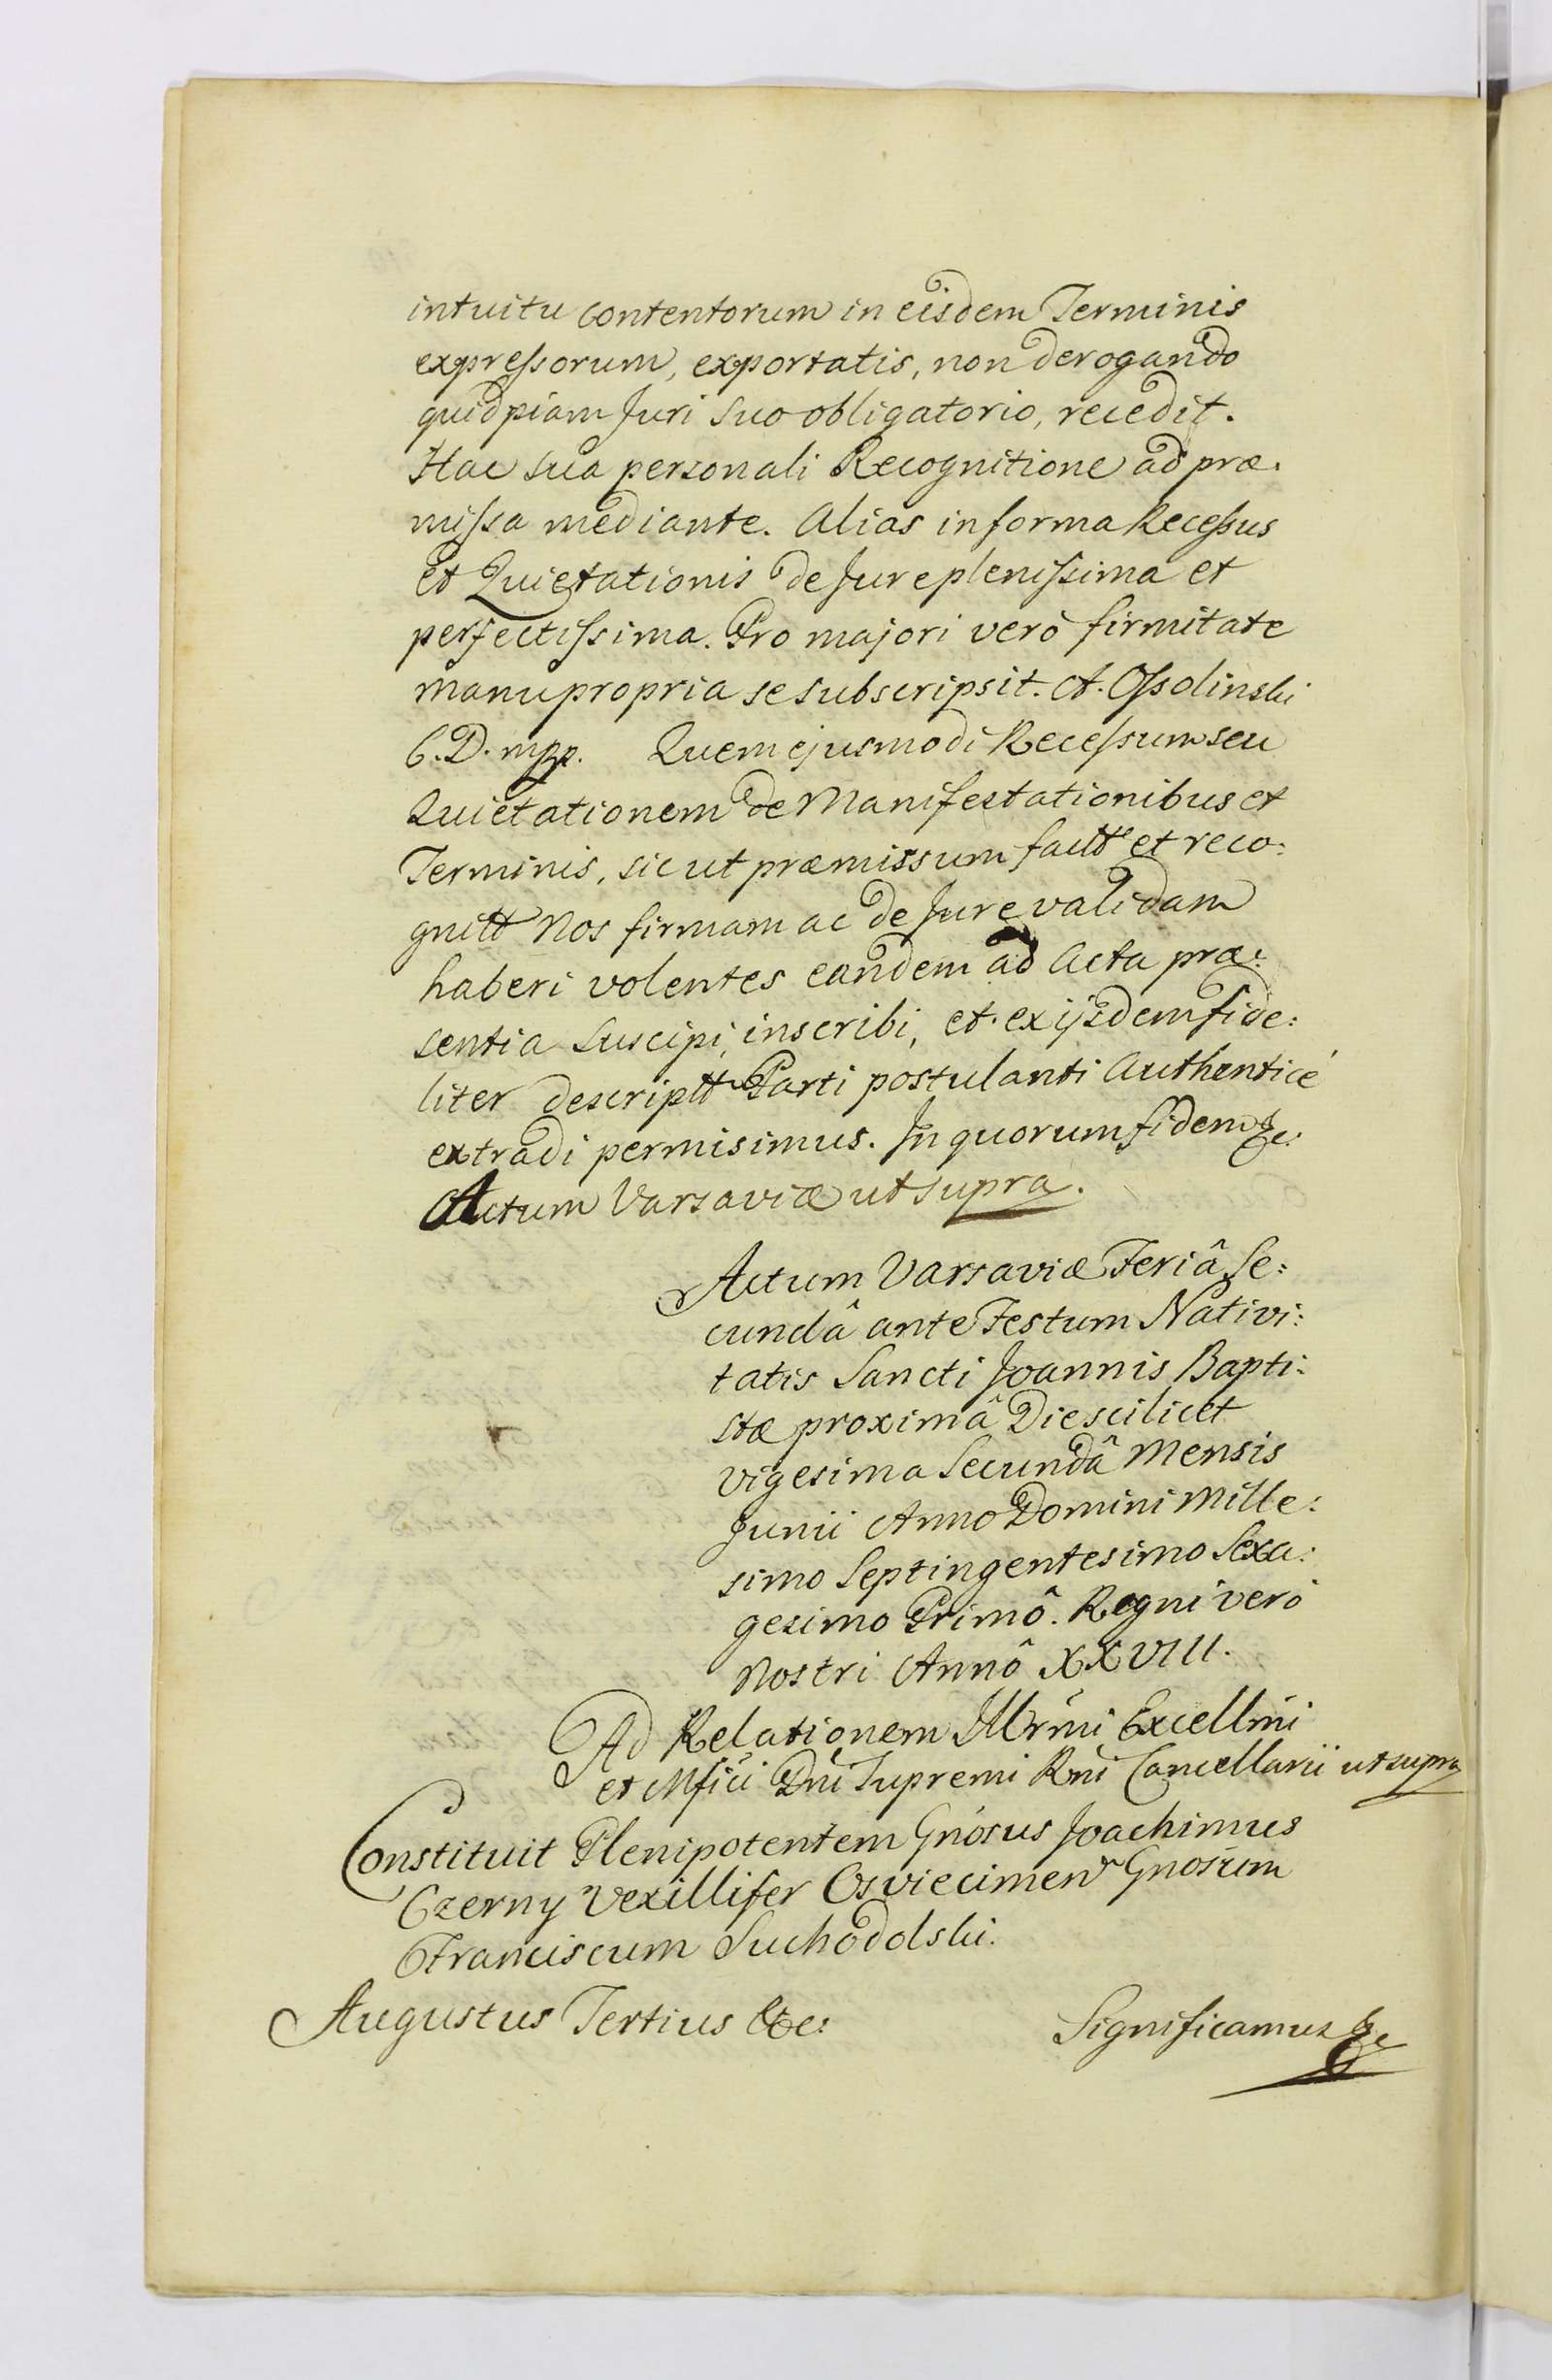 intuitu contentorum in eisdem Terminis
expreſsorum, exportatis, non derogando
quidpiam Juri suo obligatorio, recedit.
Hac sua personali Recognitione ad præ:
miſsa mediante. Alias in forma Receſsus
et Quietationis de Jure pleniſsima et
perfectiſsima. Pro majori verò firmitate
manu propria se subscripsit. A. Oſsolinski
C. D. mpp. Quem ejusmodi Receſsum seu
Quietationem de Manifestationibus et
Terminis, sic ut præmissum factt et reco:
gnitt Nos firmam ac de Jure validam
haberi volentes eandem ad Acta præ:
sentia suscipi, inscribi, et ex ijsdem fide:
liter descriptt Parti postulanti Authenticè
extradi permisimus. In quorum fidem &c:
Actum Varsaviæ ut supra.
Actum Varsaviæ Feriâ Se:
cundâ ante Festum Nativi:
tatis Sancti Joannis Bapti:
stæ proximâ Die scilicet
vigesima Secundâ Mensis
Junii Anno Domini Mille:
simo Septingentesimo Sexa:
gesimo Primô. Regni verò
Nostri Annô XXVIII.
Ad Relationem Illrmi Excellmi
et Mfici Dni Supremi Rni Cancellarii ut supra
Constituit Plenipotentem Gnosus Joachimus
Czerny Vexillifer Osviecimen Gnosum
Franciscum Suchodolski.
Augustus Tertius &c: Significamus &c